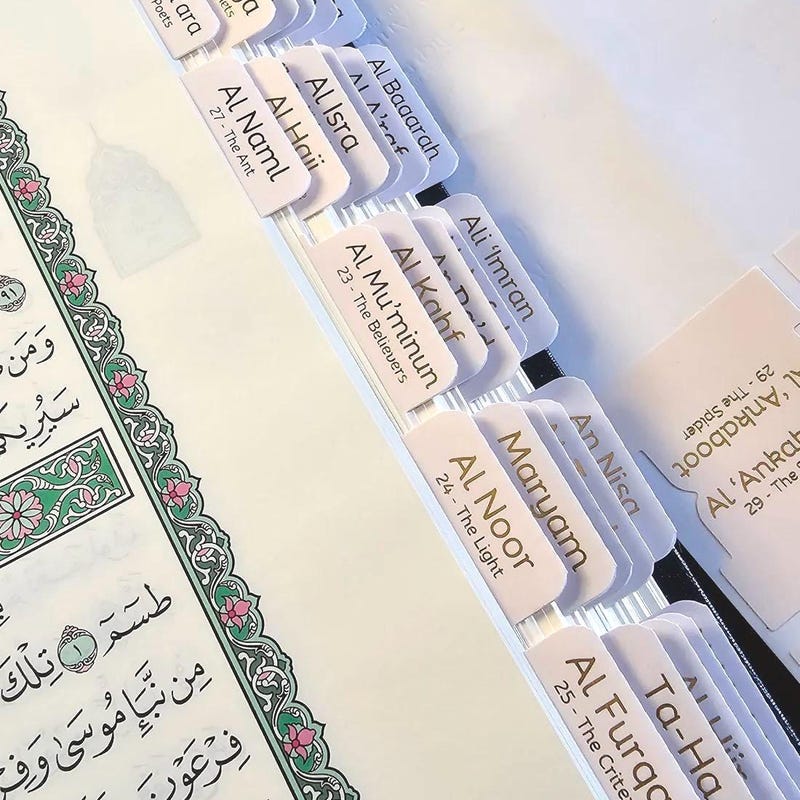 Poets
Al Naml
27 - The Ant
Al Hajj
Al Isra
Al A'raf
Al Baqarah
Al Mu'minun
23 - The Believers
Al Kahf
Ali 'Imran
Al Noor
24 - The Light
Maryam
An Nisa
Al Furqa
25 - The Crite
Ta-Ha
Al 'Ankaboot
29 - The Spider
Al 'Ankab
29 - The
٩١
وَمَن
سَيُرِيكُ
طسٓمٓ ١ تِلْكَ
مِن نَّبَإِ مُوسَىٰ وَفِرْ
فِرْعَوْنَ